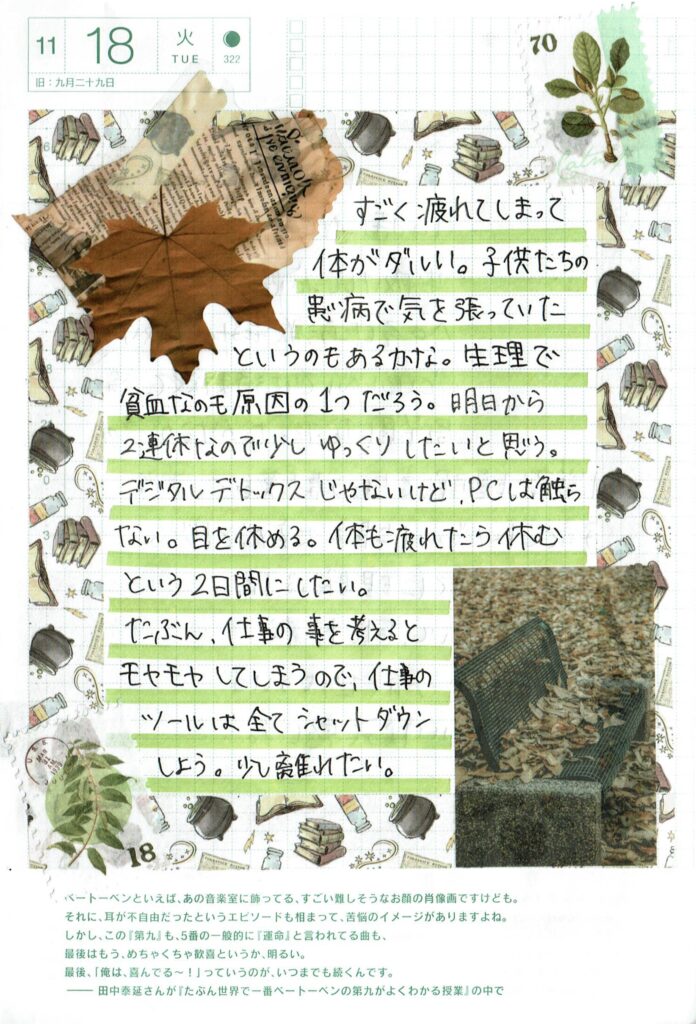 11 18 火 TUE 322
旧：九月二十九日
70
すごく疲れてしまって
体がダルい。子供たちの
悪い病で気を張っていた
というのもあるかな。生理で
貧血なのも原因の1つだろう。明日から
2連休なので少しゆっくりしたいと思う。
デジタルデトックスじゃないけど、PCは触ら
ない。目を休める。体も疲れたら休む
という2日間にしたい。
たぶん、仕事の事を考えると
モヤモヤしてしまうので、仕事の
ツールは全てシャットダウン
しよう。少し離れたい。
18
ベートーベンといえば、あの音楽室に飾ってる、すごい難しそうなお顔の肖像画ですけども。
それに、耳が不自由だったというエピソードも相まって、苦悩のイメージがありますよね。
しかし、この『第九』も、5番の一般的に『運命』と言われてる曲も、
最後はもう、めちゃくちゃ歓喜というか、明るい。
最後、「俺は、喜んでる〜！」っていうのが、いつまでも続くんです。
―― 田中泰延さんが『たぶん世界で一番ベートーベンの第九がよくわかる授業』の中で